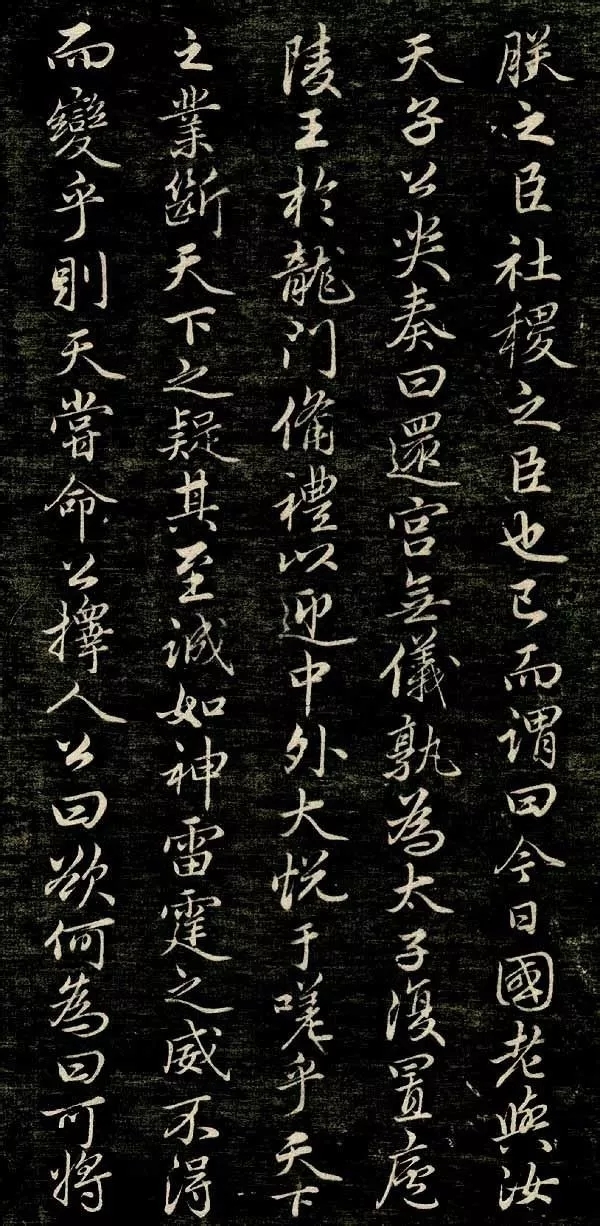 朕之臣社稷之臣也已而謂曰今日國老與汝
天子公哭奏曰還宮無儀孰為太子復置廬
陵王於龍門備禮以迎中外大悦于嗟乎天下
之業斷天下之疑其至誠如神雷霆之威不得
而變乎則天嘗命公擇人公曰欲何為曰可將